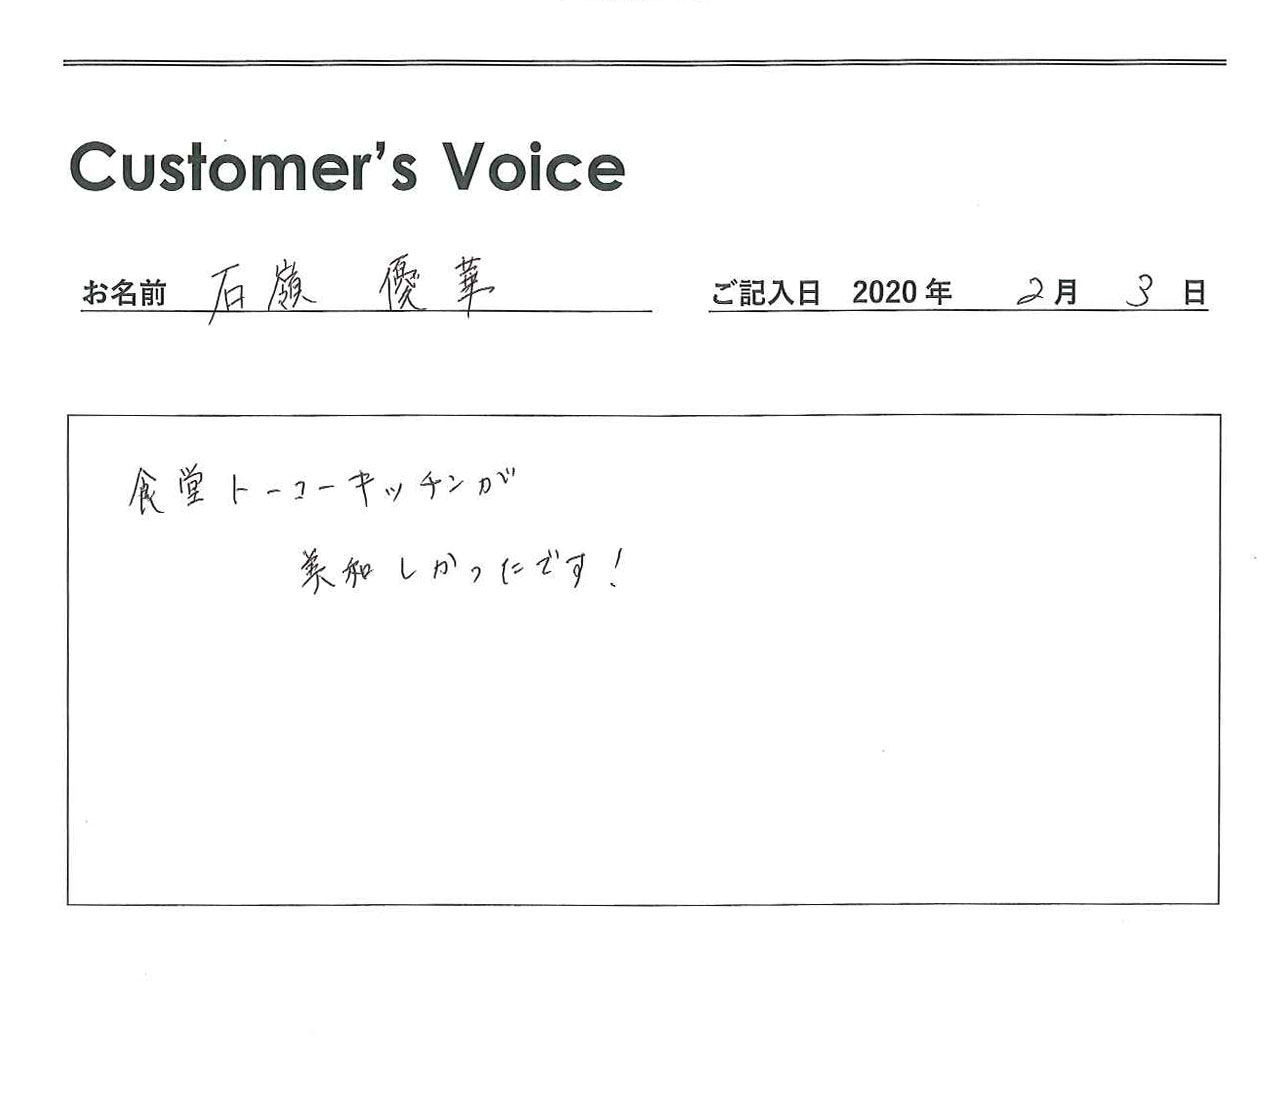 Customer's Voice
お名前 石嶺 優華
ご記入日 2020年 2月 3日
食堂トーコーキッチンが
美和しかったです!